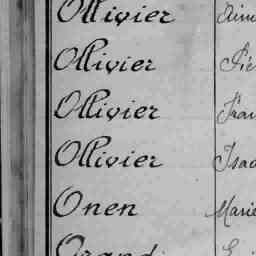 Ollivier
Ollivier
Ollivier Fran
Ollivier Isa
Onen Marie